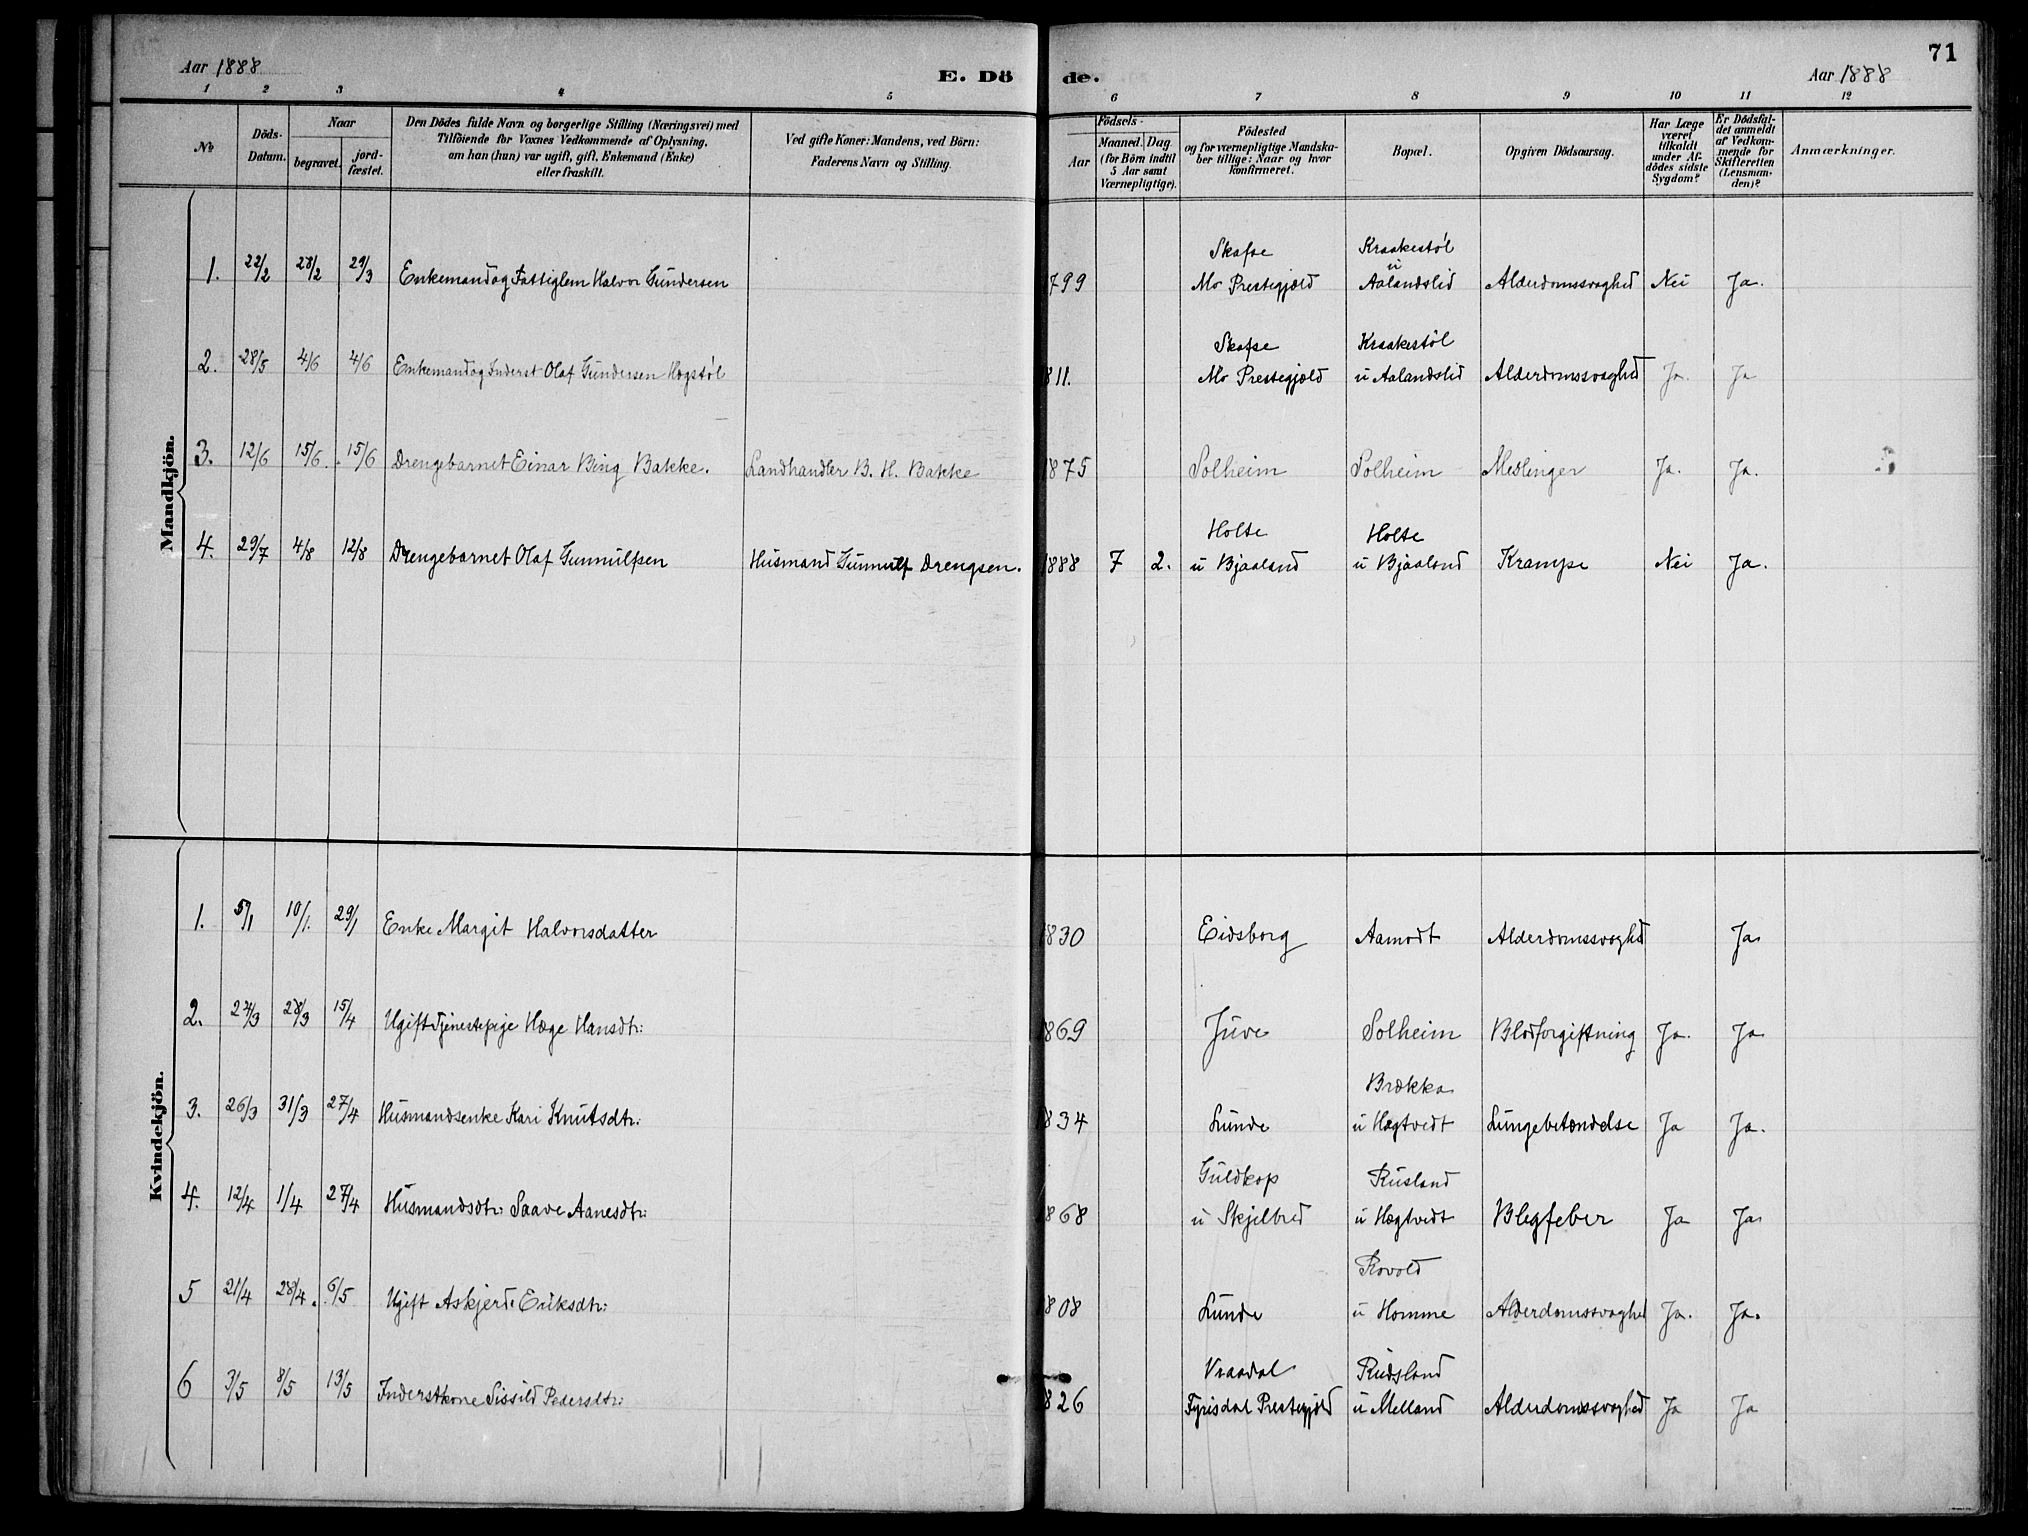 Aar 1888
E. Dö de.
Aar 1888
71
1 2 3 4 5 6 7 8 9 10 11 12
No
Döds-Datum.
Naar
begravet.
jord-fæstet.
Den Dödes fulde Navn og borgerlige Stilling (Næringsvei) med
Tilföiende for Voxnes Vedkommende af Oplysning,
om han (hun) var ugift, gift, Enkemand (Enke)
eller fraskilt.
Ved gifte Koner: Mandens, ved Börn:
Faderens Navn og Stilling.
Födsels-
Aar
Maaned. Dag.
(for Börn indtil
5 Aar samt
Værnepligtige).
Födested
og for værnepligtige Mandska-
ber tillige: Naar og hvor
konfirmeret.
Bopæl.
Opgiven Dödsaarsag.
Har Læge
været
tilkaldt
under Af-
dödes sidste
Sygdom?
Er Dödsfal-
det anmeldt
af Vedkom-
mende for
Skifteretten
(Lensman-
den)?
Anmærkninger.
Mandkjön.
Skafse Kraakestøl
1. 22/2 28/2 29/3 Enkemand og Fattiglem Halvor Gundersen 799 Mo Prestegjeld u Aalandslid Alderdomssvaghed Nei Ja.
Skafse Kraakestøl
2. 28/5 4/6 4/6 Enkemand og Inderst Olaf Gundersen Hegstøl 811. Mo Prestegjeld u Aalandslid Alderdomssvaghed Ja. Ja
3. 12/6 15/6 15/6 Drengebarnet Einar Bing Bakke. Landhandler B. H. Bakke 1875 Solheim Solheim Meslinger Ja. Ja.
Holte Holte
4. 29/7 4/8 12/8 Drengebarnet Olaf Gunnulfsen Husmand Gunnulf Drengsen. 1888 7 2. u Bjaaland u Bjaaland Krampe Nei Ja.
Kvindekjön.
1. 5/1 10/1. 29/1 Enke Margit Halvorsdatter 830 Eidsborg Aamodt Alderdomssvaghd Ja
2. 24/3 28/3 15/4 Ugift Tjenestepige Hæge Hansdtr: 869 Juve Solheim Blodforgiftning Ja. Ja
Brækka
3. 26/3 31/3 27/4 Husmandsenke Kari Knutsdtr: 834 Lunde u Hægtvedt Lungebetændelse Ja Ja.
Guldkop Rusland
4. 12/4 1/4 27/4 Husmandsdtr: Saave Aanesdtr: 868 u Skjelbred u Hægtvedt Blegfeber Ja Ja
Rovold
5 21/4 28/4. 6/5 Ugift Askjerd Eriksdtr: 808 Lunde u Homme Alderdomssvaghed Ja. Ja.
Vraadal Rudsland
6 3/5 8/5 13/5 Inderstkone Sissild Pedersdtr: 826 Fyrisdal Prestegjeld u Melland Alderdomssvaghed Ja Ja